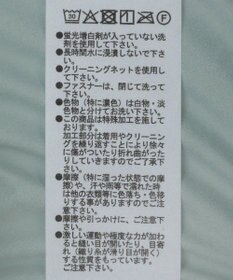 30
F
●蛍光増白剤が入っていない洗
剤を使用して下さい。
●長時間水に浸漬しないで下さ
い。
●クリーニングネットを使用し
て下さい。
●ファスナーは、閉じて洗って
下さい。
●色物（特に濃色）は白物・淡
色物と分けてお洗い下さい。
●この商品は特殊加工を施して
おります。
加工部分は着用やクリーニング
を繰り返すことにより徐々に
傷がついたり折れ曲がった
りしていきますのでご了承下
さい。
●摩擦（特に湿った状態での摩
擦）や、汗や雨等で濡れた時
は、他の衣類等に色落ち・色移
りする事がありますのでご注
意下さい。
●摩擦や引っかけに、ご注意下
さい。
●激しい運動や極度な力が加わ
ると縫い目が開いたり、目寄
れ（織り糸が滑り口が開く）
する性質をもっています。